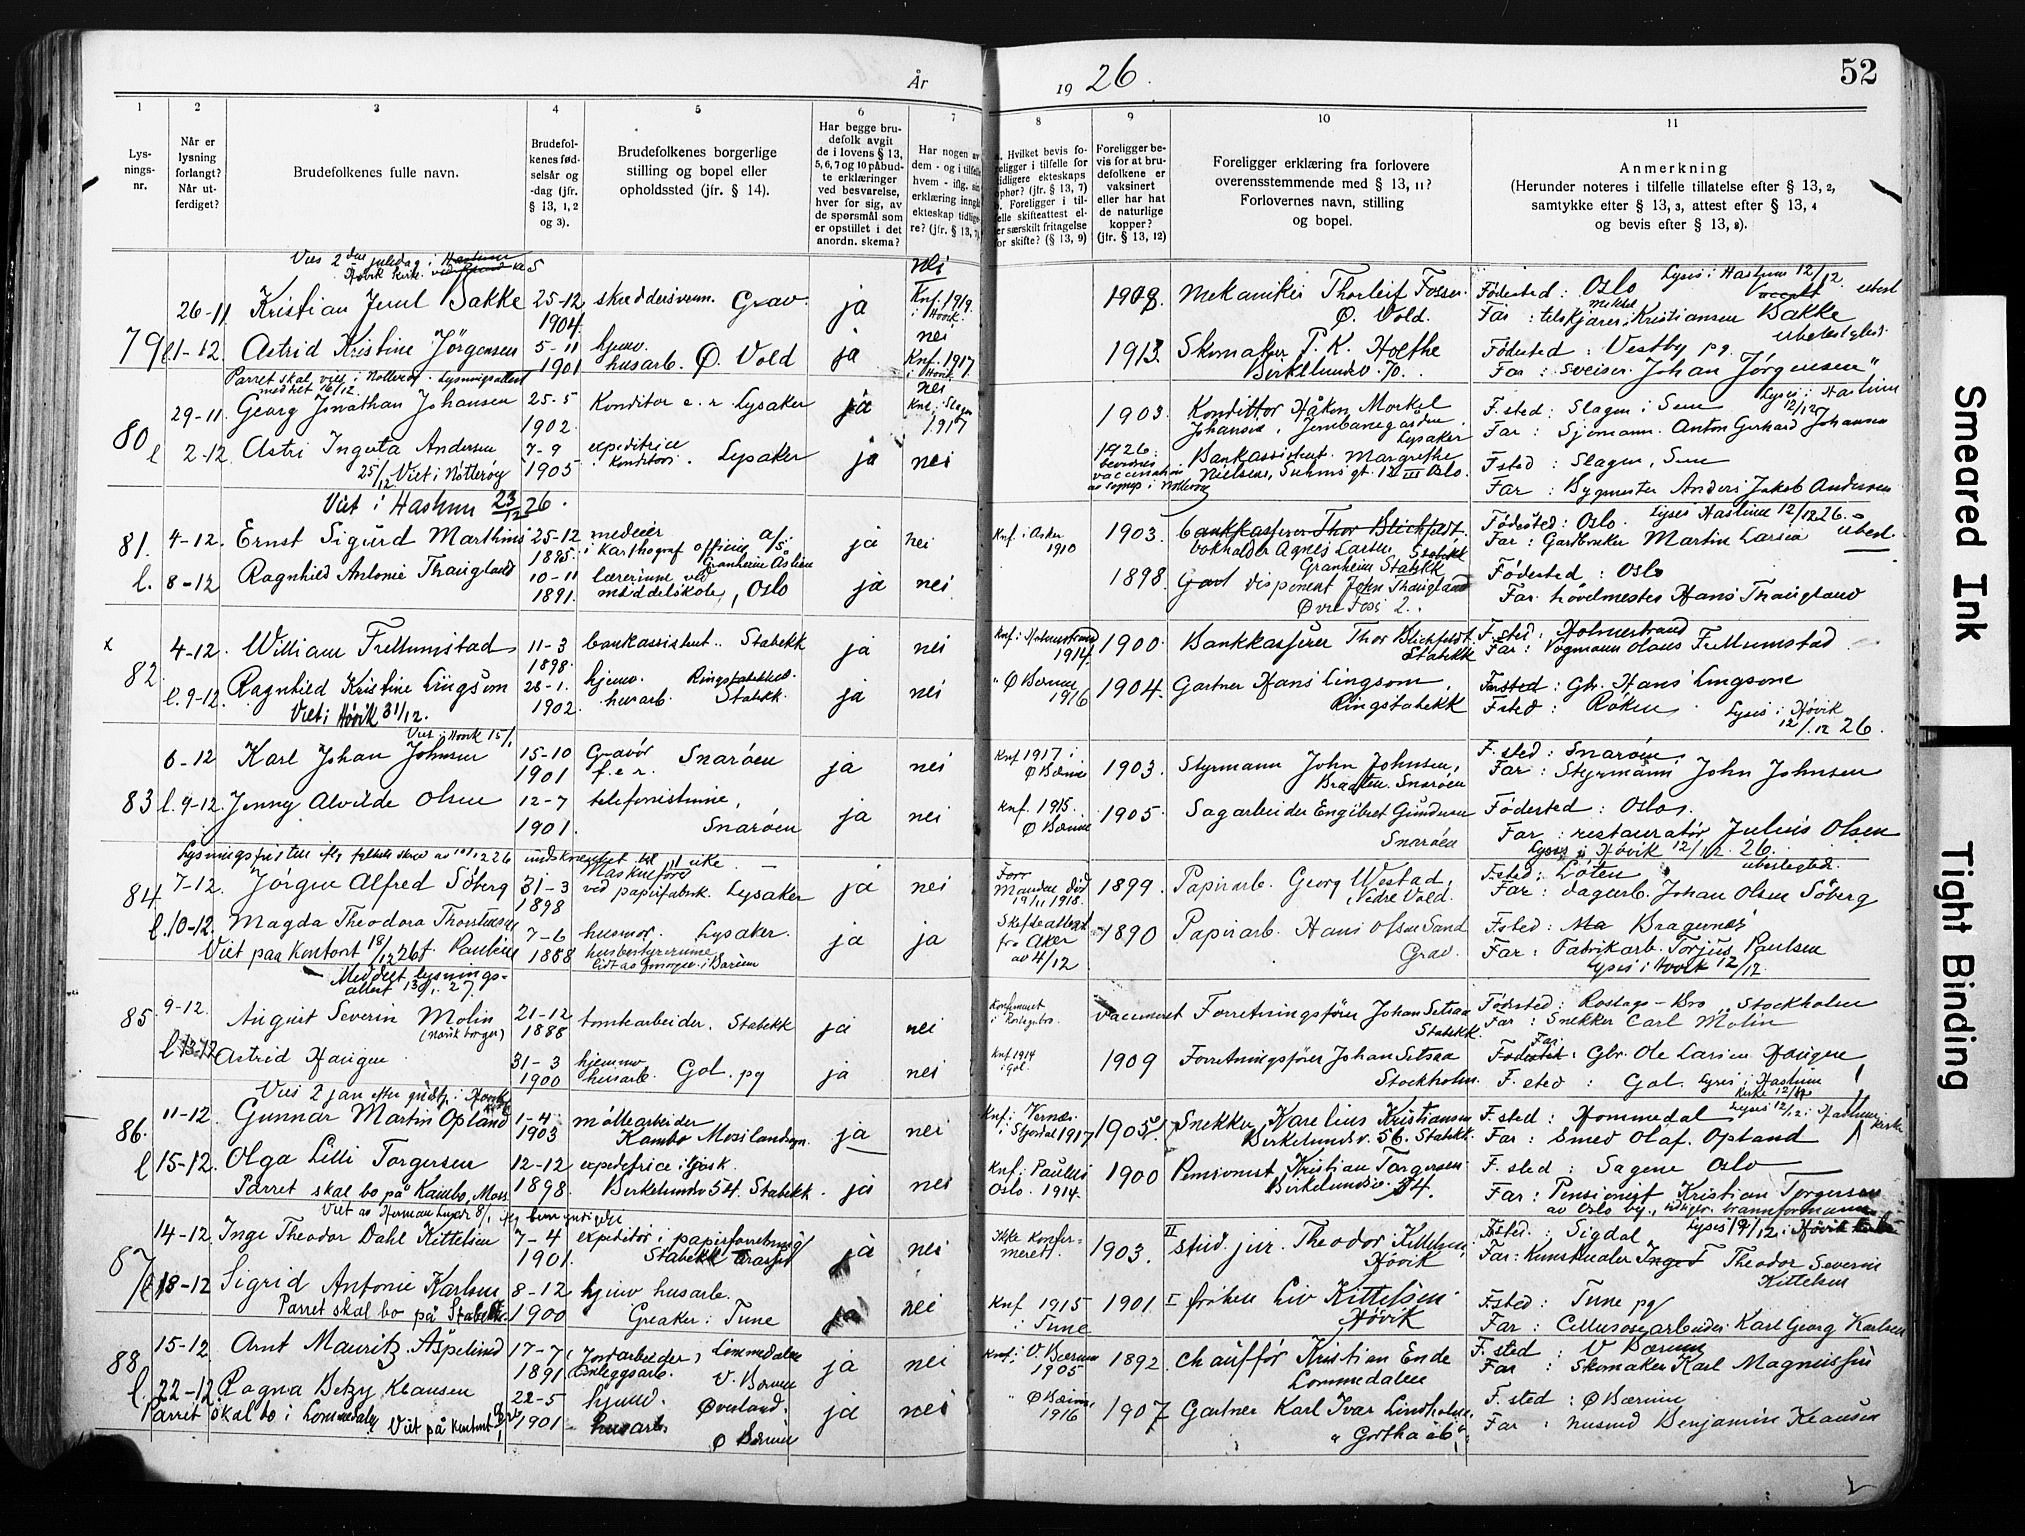 År 19 26.
52
1 2 3 4 5 6 7 8 9 10 11
Lys-
nings-
nr.
Når er
lysning
forlangt?
Når ut-
ferdiget?
Brudefolkenes fulle navn.
Brudefol-
kenes fød-
selsår og
-dag (jfr.
§ 13, 1, 2
og 3).
Brudefolkenes borgerlige
stilling og bopel eller
opholdssted (jfr. § 14).
Har begge bru-
defolk avgit
de i lovens § 13,
5, 6, 7 og 10 påbud-
te erklæringer
ved besvarelse,
hver for sig, av
de spørsmål som
er opstillet i det
anordn. skema?
Har nogen av
dem - og i tilfelle
hvem - iflg. sin
erklæring inngått
ekteskap tidlige-
re? (jfr. § 13, 7)
Hvilket bevis fo-
religger i tilfelle for
tidligere ekteskaps
ophør? (jfr. § 13, 7)
Foreligger i til-
felle skifteattest el-
ler særskilt fritagelse
for skifte? (§ 13, 9)
Foreligger be-
vis for at bru-
defolkene er
vaksinert
eller har hat
de naturlige
kopper?
(jfr. § 13, 12)
Foreligger erklæring fra forlovere
overensstemmende med § 13, 11?
Forlovernes navn, stilling
og bopel.
Anmerkning
(Herunder noteres i tilfelle tillatelse efter § 13, 2,
samtykke efter § 13, 3, attest efter § 13, 4
og bevis efter § 13, 8).
Vies 2den juledag i Haslum
Høvik kirke kl 5
79 26-11 Kristian Juul Bakke 25-12 1904 skreddersvenn. Grav. ja nei Knf. 1919 i Høvik 1908. Mekaniker Thorleif Fosser. Ø. Vold. Fødested: Oslo Lyses i Haslum 12/12. ubesl
Far: Kristiansen Bakke
l 1-12. Astrid Kristine Jörgensen 5-11 1901 hjemv. husarb. Ø. Vold ja nei Knf. 1917 i Høvik 1913. Skomaker P. K. Holthe Birkelundsv. 70. Fødested: Vestby pg. ubeslegted.
Far: sveiser Johan Jørgensen
Parret skal vies i Nøtterøy. Lysningsattest meddelt 16/12
80 29-11 Georg Jonathan Johansen 25-5 1902. Konditor e. r. Lysaker ja nei Knf. i Slagen 1917 1903. Konditor Håkon Morkel Johansen, Jernbanegården Lysaker F. sted: Slagen i Sem Lyses i Haslum 12/12
Far: Sjømann Anton Gerhard Johansen
l 2-12. Astri Ingerta Andersen 7-9 1905 expeditrice i konditori. Lysaker ja nei 1926. Bankassistent Margrethe Nielsen, Suhms gt. 12 III Oslo. F sted: Slagen, Sem
Far: Bygmester Anders Jakob Andersen
25/12 Viet i Nøtterøy
Viet i Haslum 23/12 26.
81. 4-12. Ernst Sigurd Marthins 25-12 1895. medeier i Karthograf officin a/s Granheim Åsteen ja nei Knf. i Asker 1910 1903. Bankkasserer Thor Blichfeldt bokholder Agnes Larsen, Stabekk Granheim Stabekk Fødested: Oslo. Lyses Haslum 12/12 26. ubesl.
Far: Gardbruker Martin Larsen
l. 8-12 Ragnhild Antonie Thaugland 10-11 1891. lærerinne ved middelskole, Oslo ja nei 1898. disponent John Thaugland Øvre Foss 2. Fødested: Oslo
Far: høvelmester Hans Thaugland
x 82 4-12. William Frellumstad 11-3 1898. bankassistent. Stabekk ja nei Knf. i Holmestrand 1914 1900. Bankkasserer Thor Blichfeldt Stabekk F. sted: Holmestrand
Far: Vognmann Olaus Frellumstad
l. 9-12. Ragnhild Kristine Lingsom 28-1. 1902. hjemv. husarb. Ringstabekkv. Stabekk. ja nei " Ø Bærum 1916 1904. Gartner Hans Lingsom, Ringstabekk Far: Gbr. Hans Lingsom
F sted: Røken. Lyses i Høvik 12/12 26.
Viet i Høvik 31/12.
Viet i Høvik 15/1
83 6-12 Karl Johan Johnsen 15-10 1901 Gravör f.e.r. Snarøen ja nei Knf 1917 i Ø Bærum 1903. Styrmann John Johnsen, Bråten Snarøen F. sted: Snarøen
Far: Styrmann John Johnsen
l. 9-12. Jenny Alvilde Olsen 12-7 1901. telefonistinne, Snarøen ja nei Knf. 1915. Ø Bærum 1905. Sagarbeider Engibret Gundersen Snarøen Fødested: Oslo.
Far: restauratør Julius Olsen
Lyses i Høvik 12/12. 26.
Lysningsfristen indskrenket til 1 uke.
84 7-12. Jörgen Alfred Söberg 31-3 1898 Maskinfører ved papirfabrik. Lysaker ja nei 1899. Papirarb. Georg Westad, Nedre Vold. F. sted: Løten ubeslegted.
Far: dagarb. Johan Olsen Söberg
l. 10-12. Magda Theodora Thorstensen f. Paulsen 7-6 1888 husmor. Lysaker. ja ja Forr Manden død 19/11 1918. Skifteattest fra Aker av 4/12 1890 Papirarb. Hans Olsen Sand Grav. F. sted: Bragernes
Far: Fabrikarb. Torjus Paulsen
Lyses i Høvik 12/12.
Viet paa kontoret 18/12 26
Meddelt lysnings-
attest 13/1. 27.
85 9-12. August Severin Molin (norsk borger) 21-12 1888 tomtearbeider. Stabekk ja nei vaccineret Forretningsfører Johan Setsaa Stabekk Fødested: Rostags-Bro, Stockholm
Far: Snekker Carl Molin
l 13-12 Astrid Haugen 31-3 1900 hjemmev husarb. Gol. pg ja nei Knf 1914 i Gol. 1909 Forretningsfører Johan Setsaa Stockholm. Far: Gbr. Ole Larsen Haugen
F. sted: Gol. Lyses i Haslum kirke 12/12
Vies 2 jan efter gudstj. i Høvik kirke
86. 11-12. Gunnar Martin Opland 1-4 1903 möllearbeider Kambo Moss landsogn. ja nei Knf. i Vernes i Stjørdal 1917 1905. Snekker Karelius Kristiansen Birkelundsv. 56. Stabekk. F. sted: Hommedal Lyses 12/12 i Haslum kirke
Far: Smed Olaf Opland
l 15-12. Olga Lilli Torgersen 12-12 1898. expeditrice i kjosk. Birkelundsv 54. Stabekk. ja nei Knf. i Paulus Oslo. 1914. 1900 Pensionist Kristian Torgersen Birkelundsv. 54. F. sted: Sagene Oslo
Far: Pensionist Kristian Torgersen
av Oslo by, tidliger brannformann
Parret skal bo på Kambo, Moss
87 14-12. Inge Theodor Dahl Kittelsen 7-4 1901. expeditör i papirforretning Stabekk ja nei Ikke konfir-
meret. 1903. II Stud. jur. Theodor Kittelsen, Høvik F. sted: Sigdal Lyses 19/12 i Høvik kirke
Far: Kunstmaler Inged Theodor Severin Kittelsen
l 18-12 Sigrid Antonie Karlsen 8-12 1900 hjemv husarb. Greaker i Tune ja nei Knf 1915 i Tune 1901. I frøken Liv Kittelsen. Høvik F. sted: Tune pg
Far: Cellulosearbeider Karl Georg Karlsen
Parret skal bo på Stabekk.
88 15-12. Arnt Mauritz Åspelund 17-7 1891 (Jordarbeider) Anleggsarb. Lommedalen V. Bærum ja nei Knf. i V. Bærum 1905 1892. chauffør Kristian Ende Lommedalen F. sted: V Bærum
Far: Skomaker Karl Magnussen
l. 22-12 Ragna Betzy Klausen 22-5 1901 hjemv. husarb. Øverland. Ø Bærum ja nei " Ø Bærum 1916 1907 Gartner Karl Ivar Lindholm, F. sted: Ø Bærum
Far: husmd Benjamin Klausen
Parret skal bo i Lommedalen Viet på kontoret
Smeared Ink
Tight Binding